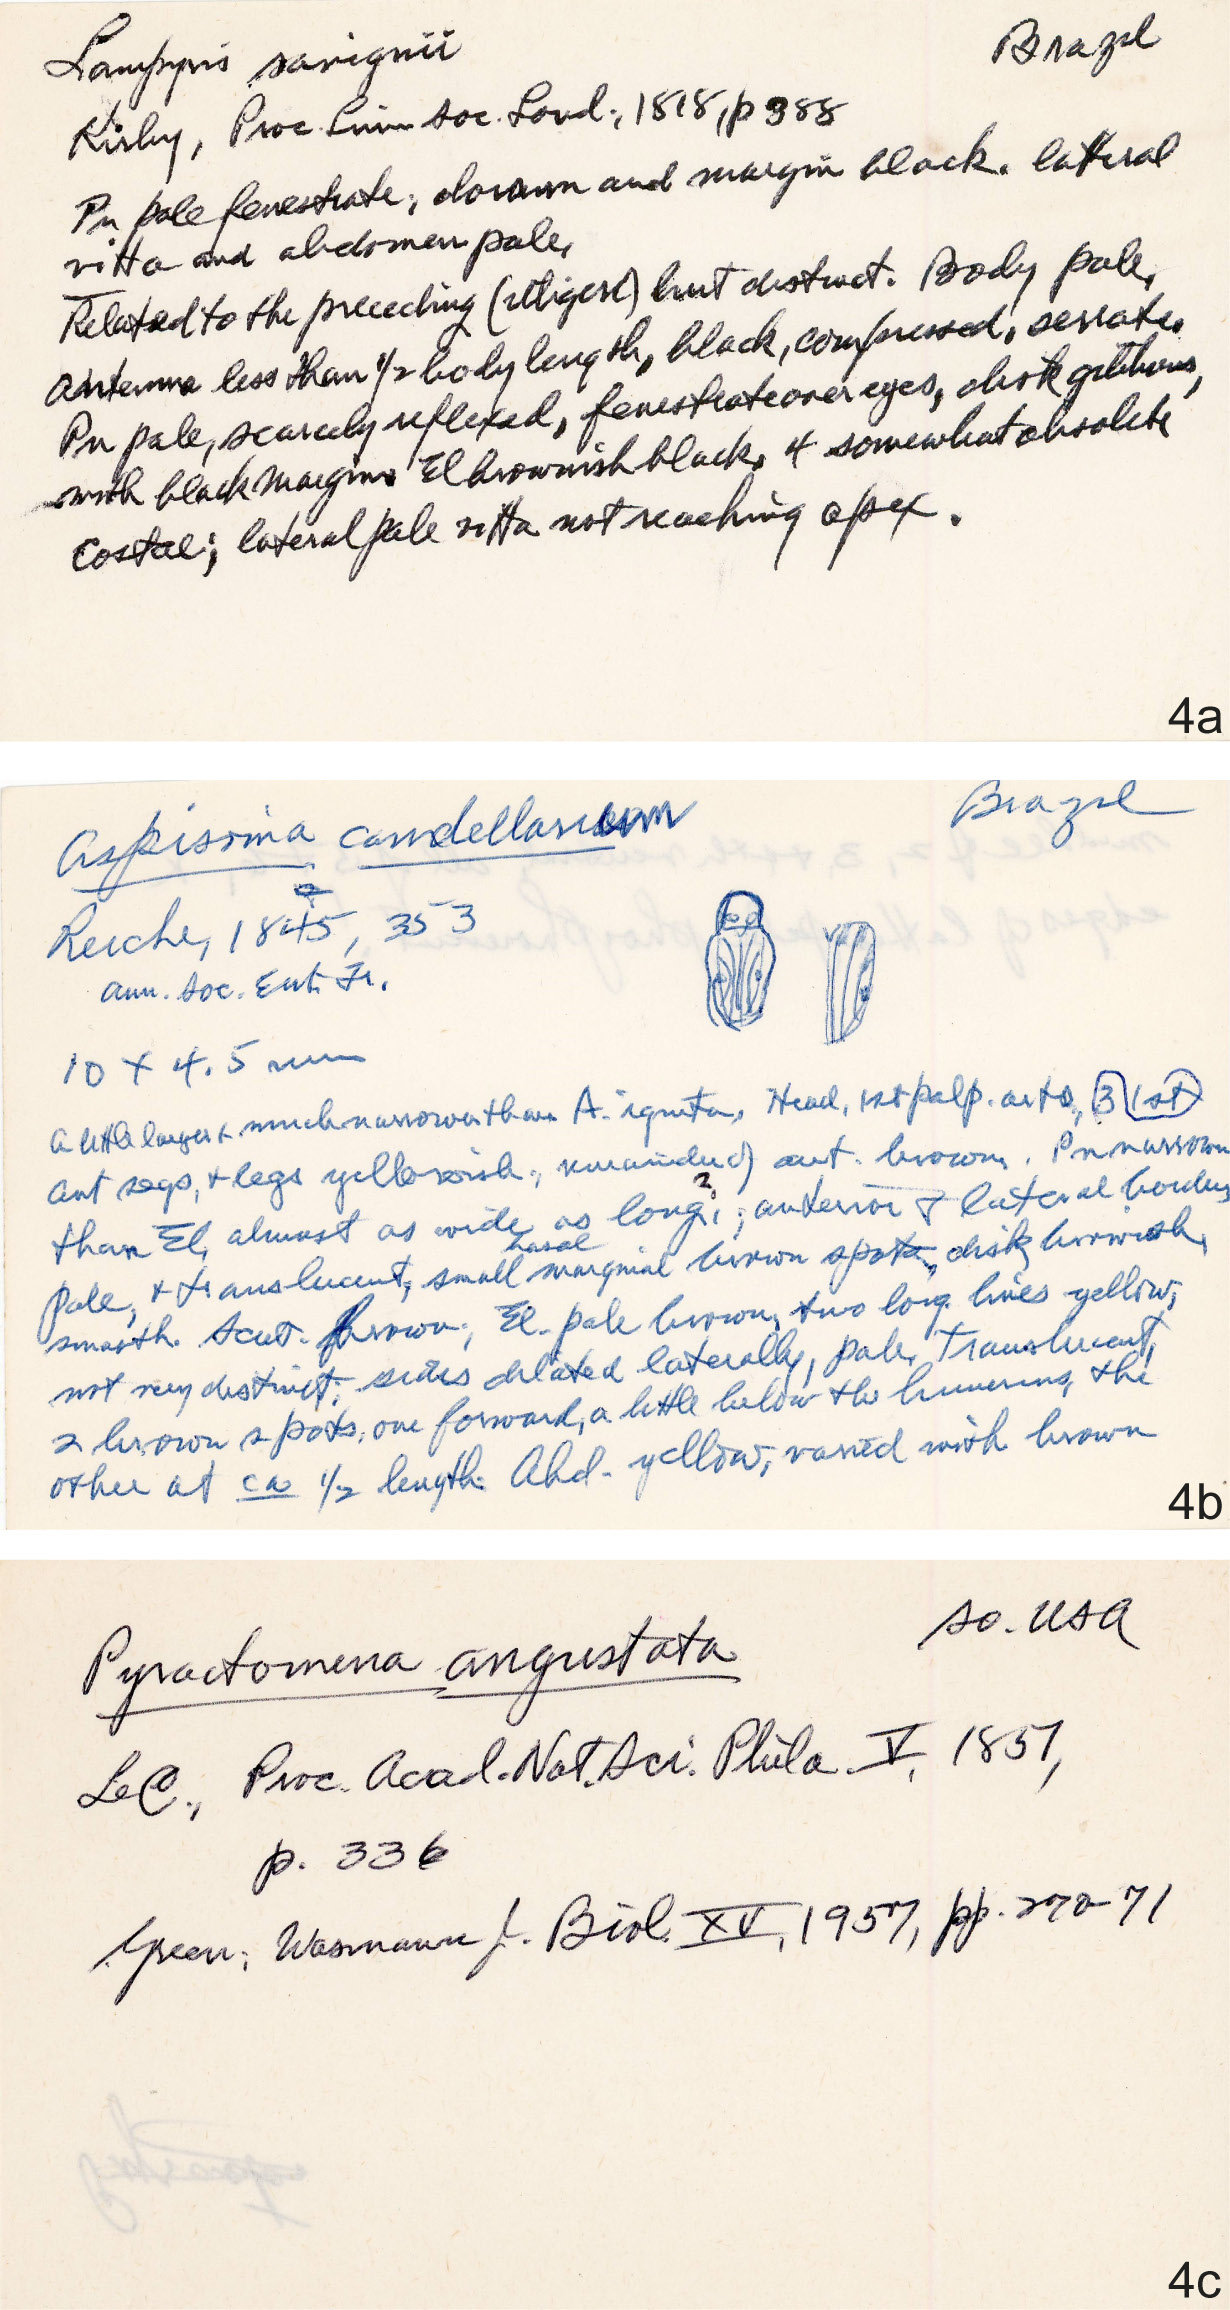 Lampyris savignii Brazil
Kirby, Proc. Linn Soc. Lond., 1818, p 388
Pn pale fenestrate, dorsum and margin black. lateral
vitta and abdomen pale.
Related to the preceding (illigeri) but distinct. Body pale,
antenna less than 1/2 body length, black, compressed, serrate.
Pn pale, scarcely reflexed, fenestrate over eyes, disk gibbous,
with black margin. El brownish black. 4 somewhat obsolete
Costae; lateral pale vitta not reaching apex.
4a
Aspisoma candellarium Brazil
Reiche, 1845, 353
Ann. Soc. Ent. Fr.
10 x 4.5 mm
a little larger + much narrower than A. ignita. Head, 1st palp. arts, 3 1st
ant segs, + legs yellowish, remainder ant. brown. Pn narrower
than El, almost as wide as long?; anterior & lateral borders
pale, + translucent, small basal marginal brown spots, disk brownish,
smooth. Scut. brown; El. pale brown, two long. lines yellow,
not very distinct; sides dilated laterally, pale, translucent,
2 brown spots, one forward, a little below the humerus, the
other at ca 1/2 length. Abd. yellow, varied with brown
4b
Pyractomena angustata so. USA
LeC., Proc. Acad. Nat. Sci. Phila. V, 1851,
p. 336
Green, Wasmann J. Biol. XV, 1957, pp. 270-71
4c